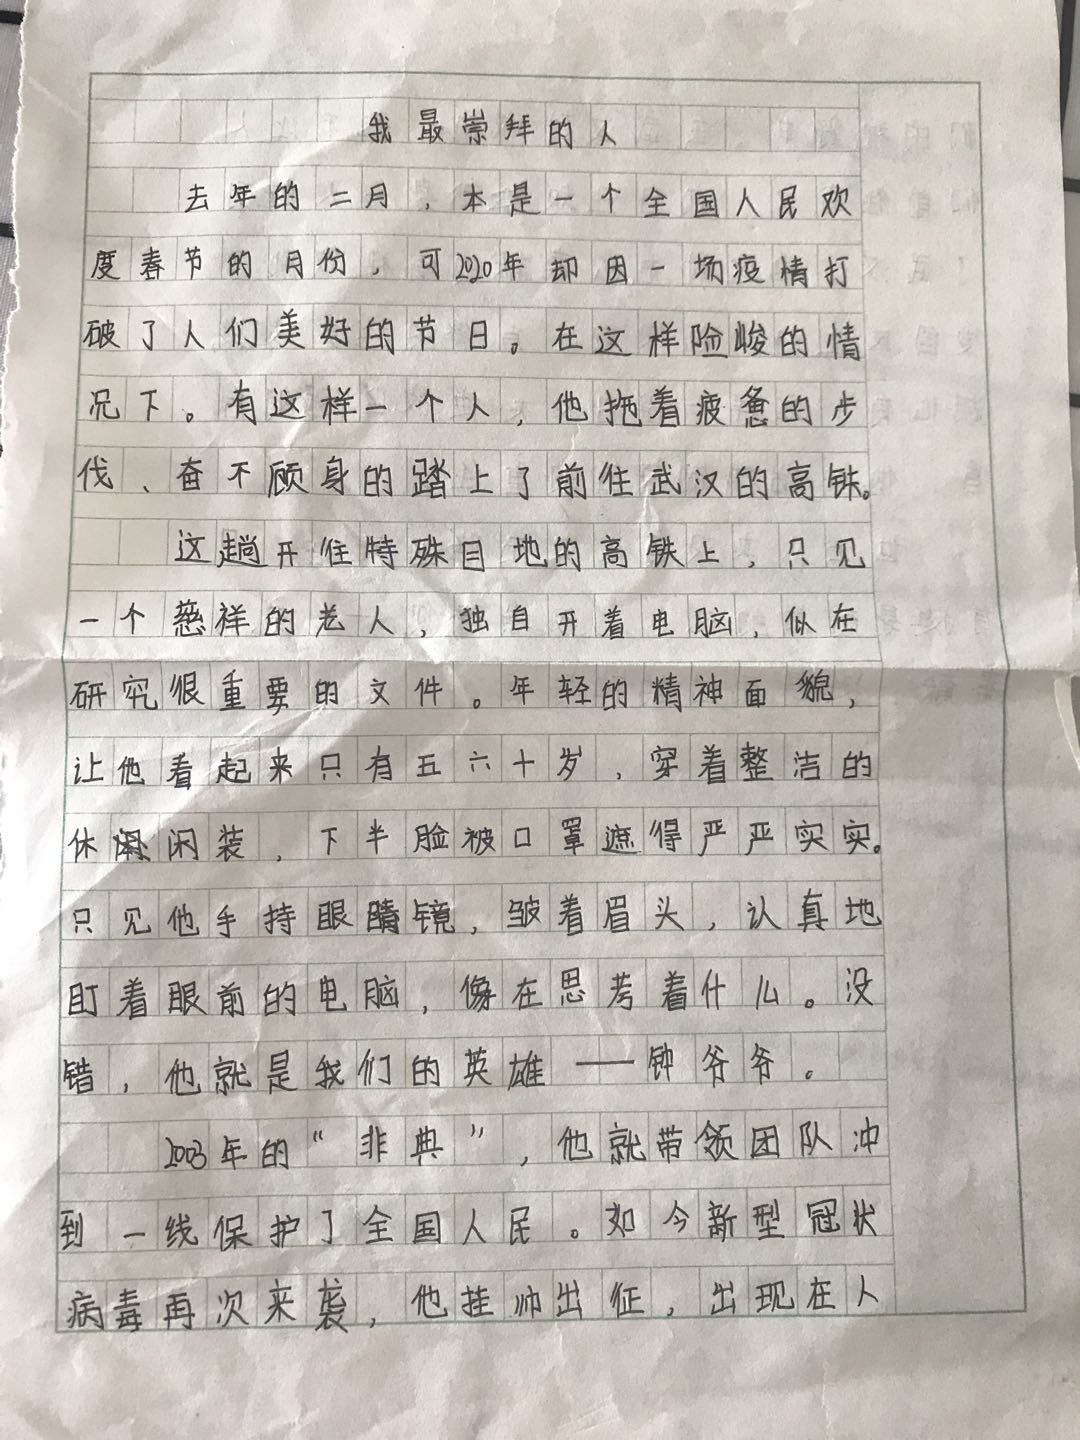 我最崇拜的人
去年的二月，本是一个全国人民欢
度春节的月份，可2020年却因一场疫情打
破了人们美好的节日。在这样险峻的情
况下。有这样一个人，他拖着疲惫的步
伐、奋不顾身的踏上了前往武汉的高铁。
这趟开往特殊目地的高铁上，只见
一个慈祥的老人，独自开着电脑，似在
研究很重要的文件。年轻的精神面貌，
让他看起来只有五六十岁，穿着整洁的
休闲装，下半脸被口罩遮得严严实实。
只见他手持眼睛镜，皱着眉头，认真地
盯着眼前的电脑，像在思考着什么。没
错，他就是我们的英雄——钟爷爷。
2003年的“非典”，他就带领团队冲
到一线保护了全国人民。如今新型冠状
病毒再次来袭，他挂帅出征，出现在人